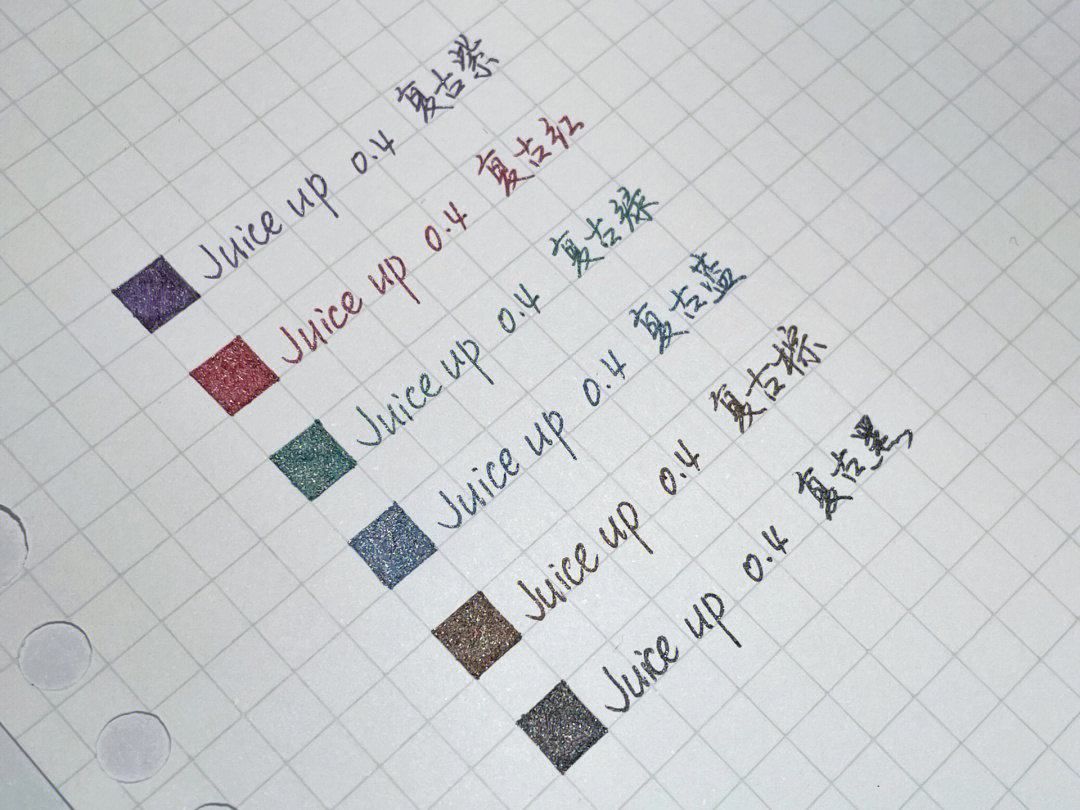 Juice up 0.4 复古紫
Juice up 0.4 复古红
Juice up 0.4 复古绿
Juice up 0.4 复古蓝
Juice up 0.4 复古棕
Juice up 0.4 复古黑